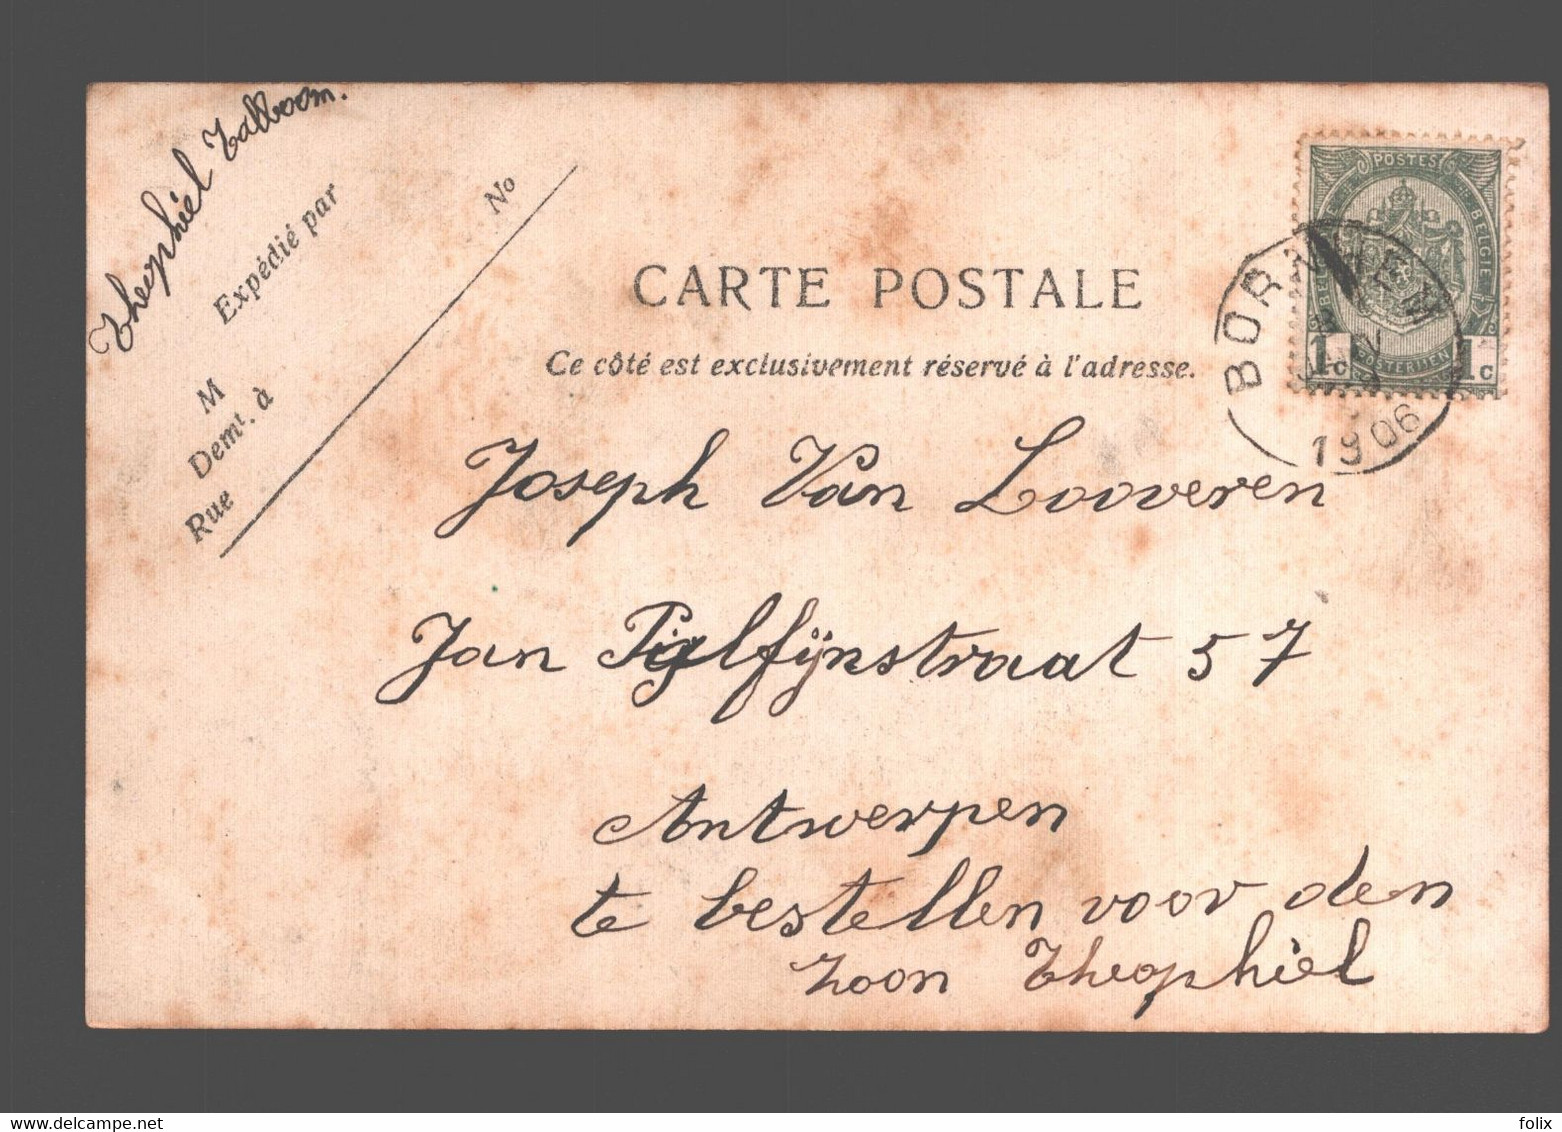 Theophiel Talboom.
Expédié par
No
M
Demt. à
Rue
CARTE POSTALE
Ce côté est exclusivement réservé à l'adresse.
POSTES
BELGIE
1c 1c
BORNHEM
1906
Joseph Van Looveren
Jan
57
Antwerpen
te bestellen voor den
zoon Theophiel
delcampe.net
folix